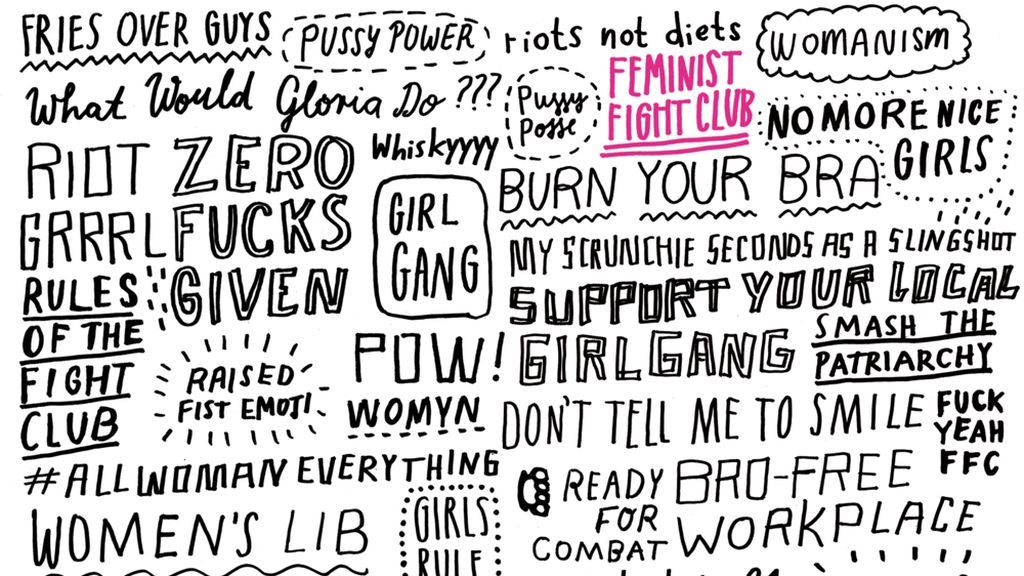 FRIES OVER GUYS
PUSSY POWER
riots not diets
WOMANISM
What Would Gloria Do ???
Pussy
Posse
FEMINIST
FIGHT CLUB
NO MORE NICE
GIRLS
RIOT
GRRRL
ZERO
FUCKS
GIVEN
Whiskyyyy
GIRL
GANG
BURN YOUR BRA
MY SCRUNCHIE SECONDS AS A SLINGSHOT
SUPPORT YOUR LOCAL
GIRLGANG
RULES
OF THE
FIGHT
CLUB
RAISED
FIST EMOJI
POW!
WOMYN
SMASH THE
PATRIARCHY
DON'T TELL ME TO SMILE
FUCK
YEAH
FFC
#ALLWOMANEVERYTHING
READY
FOR
COMBAT
BRO-FREE
WORKPLACE
WOMEN'S LIB
GIRLS
RULE